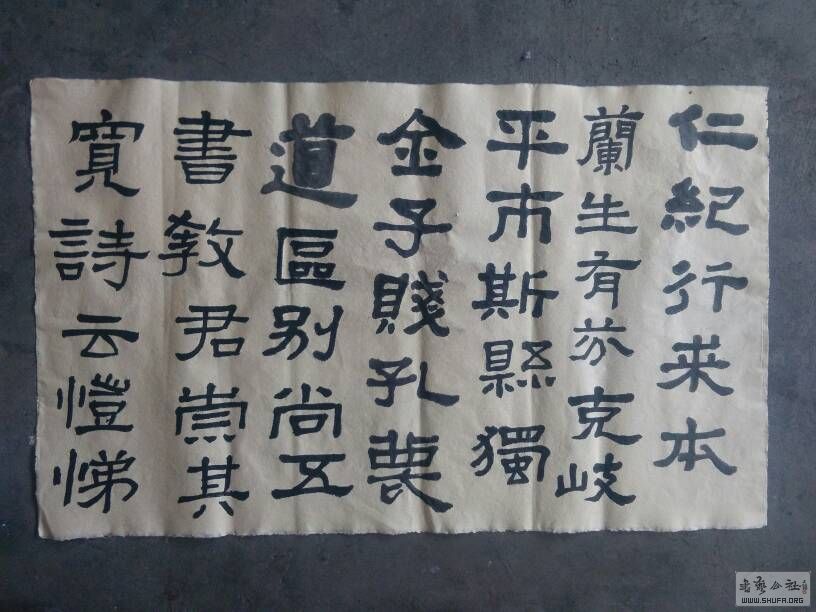 仁紀行来本
蘭生有芬克岐
平市斯縣獨
金子賤孔蔑
道區别尚五
書教君崇其
寬詩云愷悌
书藝公社
WWW.SHUFA.ORG